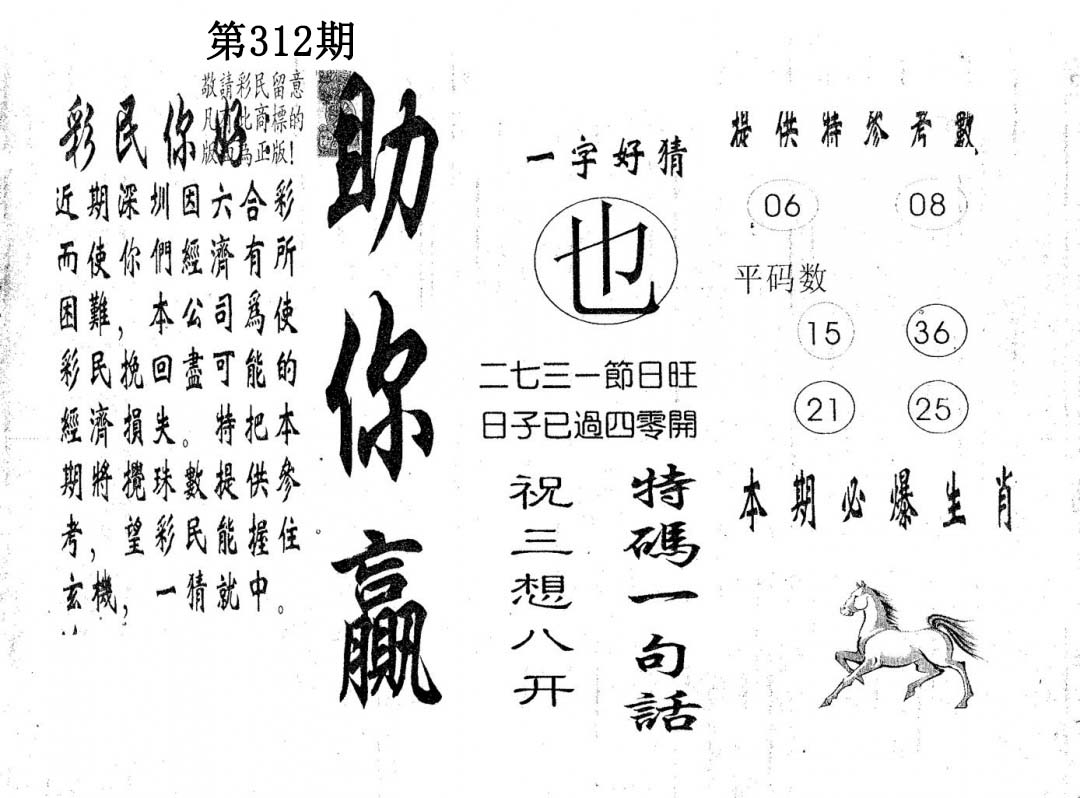 第312期
敬請彩民留意
凡 此商標的
版 為正版！
彩民你好
近期深圳因六合彩
而使你們經濟有所
困難，本公司為使
彩民挽回盡可能的
經濟損失。特把本
期將攪珠數提供參
考，望彩民能握住。
玄機，一猜就中。
助你贏
一字好猜
也
二七三一節日旺
日子已過四零開
特碼一句話
祝三想八开
提供特參考數
06 08
平码数
15 36
21 25
本期必爆生肖